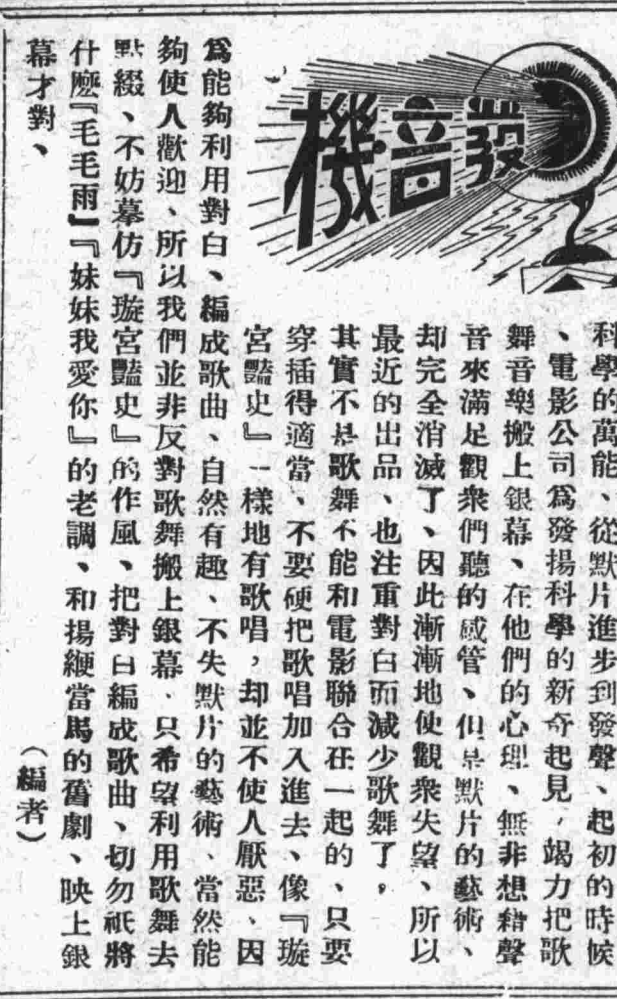 發音機
科學的萬能、從默片進步到發聲、起初的時候
、電影公司爲發揚科學的新奇起見、竭力把歌
舞音樂搬上銀幕、在他們的心理、無非想藉聲
音來滿足觀衆們聽的感管、但是默片的藝術、
却完全消滅了、因此漸漸地使觀衆失望、所以
最近的出品、也注重對白而減少歌舞了，
其實不是歌舞不能和電影聯合在一起的、只要
穿插得適當、不要硬把歌唱加入進去、像『璇
宮豔史』一樣地有歌唱，却並不使人厭惡、因
爲能夠利用對白、編成歌曲、自然有趣、不失默片的藝術、當然能
夠使人歡迎、所以我們並非反對歌舞搬上銀幕、只希望利用歌舞去
點綴、不妨摹仿『璇宮豔史』的作風、把對白編成歌曲、切勿祇將
什麽『毛毛雨』『妹妹我愛你』的老調、和揚鞭當馬的舊劇、映上銀
幕才對、
（編者）